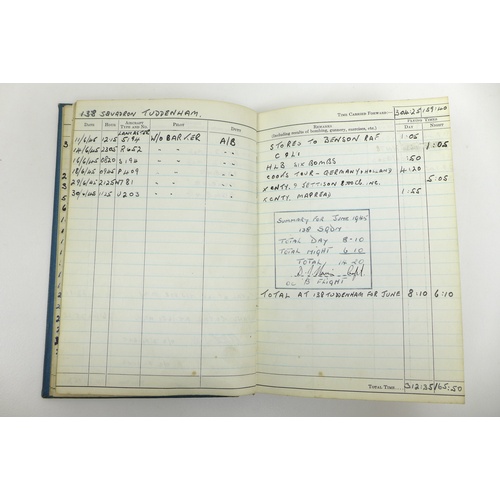 138 SQUADRON TUDDENHAM.
TIME CARRIED FORWARD:— 304:25 159:40
DATE HOUR AIRCRAFT TYPE AND NO. PILOT DUTY REMARKS (including results of bombing, gunnery, exercises, etc.) FLYING TIMES DAY NIGHT
LANCASTER
11/6/45 1215 S194 W/O BARKER A/B STORES TO BENSON RAF 1:05
14/6/45 2305 " " 1:05
16/6/45 0820 S194 " " H.L.B SIX BOMBS :50
18/6/45 " " COOK'S TOUR - GERMANY & HOLLAND 4:20
29/6/45 2125 " " 5:05
30/6/45 1125 " " XCNTY. 1:55
SUMMARY FOR JUNE 1945
138 SQDN
TOTAL DAY 8-10
TOTAL NIGHT 6.10
TOTAL 14.20
OC B FLIGHT
TOTAL AT 138 TUDDENHAM FOR JUNE 8:10 6:10
TOTAL TIME... 312:35 165:50